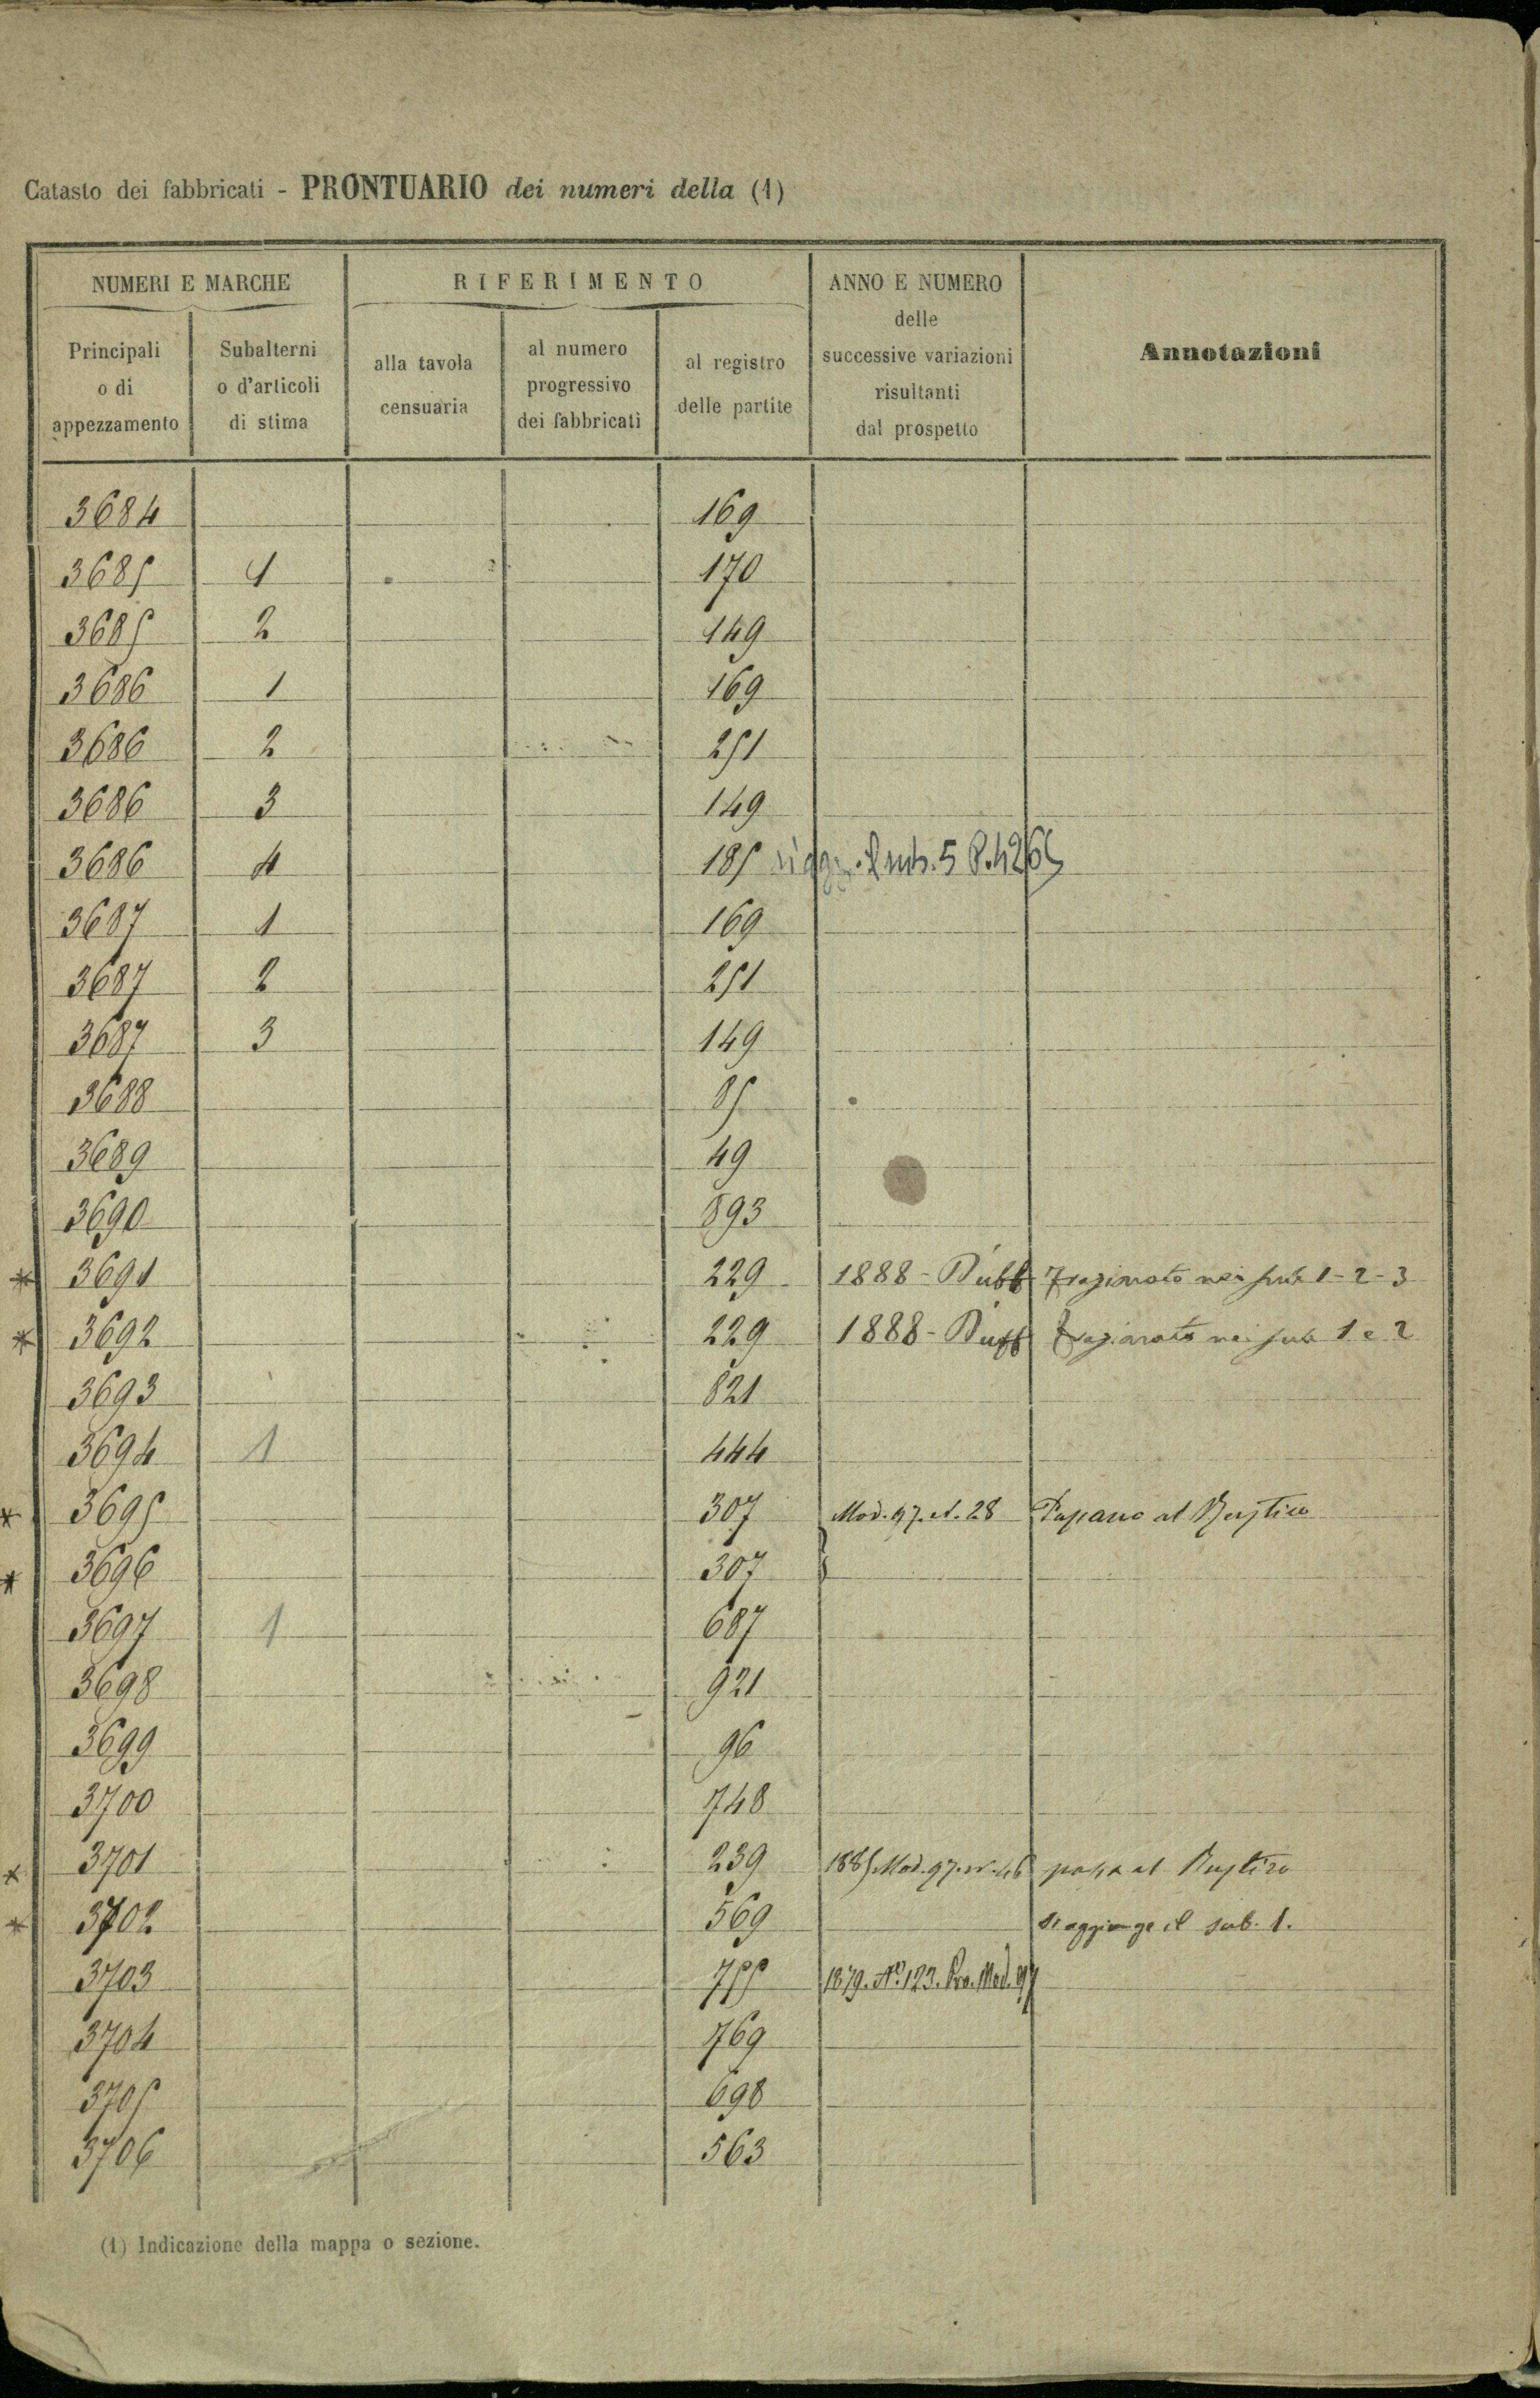 Catasto dei fabbricati - PRONTUARIO dei numeri della (1)
NUMERI E MARCHE
RIFERIMENTO
ANNO E NUMERO
delle
successive variazioni
risultanti
dal prospetto
Annotazioni
Principali
o di
appezzamento
Subalterni
o d'articoli
di stima
alla tavola
censuaria
al numero
progressivo
dei fabbricati
al registro
delle partite
3684 169
3685 1 170
3685 2 149
3686 1 169
3686 2 251
3686 3 149
3686 4 185 si agg. il sub. 5 P.
3687 1 169
3687 2 251
3687 3 149
3688 85
3689 49
3690 893
* 3691 229 1888 - frazionato nei sub 1-2-3
* 3692 229 1888 - frazionato nei sub 1 e 2
3693 821
3694 1 444
* 3695 307 Mod. 97. N. 28 Passano al Rustico
* 3696 307 }
3697 1 687
3698 921
3699 96
3700 748
* 3701 239 1885 Mod. 97. N. 46 passa al Rustico
* 3702 569 si aggiunge il sub. 1.
3703 755 1879. N.º 123. Pro. Mod. 97
3704 769
3705 698
3706 563
(1) Indicazione della mappa o sezione.